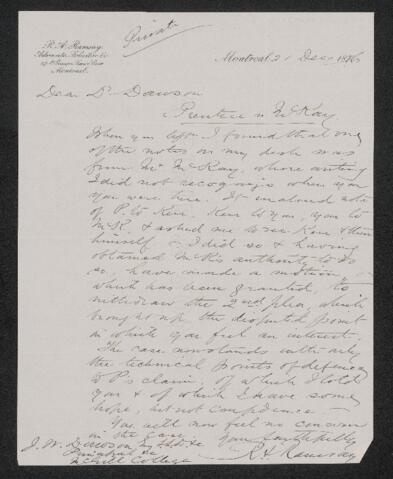 Private
R. A. Ramsay,
Advocate, Solicitor &c
Montreal.
Montreal 21 Dec 1876
Dear Dr Dawson
Prentice v McKay.
When you left I found that one
of the notes on my desk was
from Mr McKay, whose writing
I did not recognize when you
you were here. It enclosed note
of P. to Kerr. Kerr to you, you to
McK. & asked me to see Kerr & then
himself — I did so & having
obtained McK's authority to do
so, have made a motion,
which has been granted, to
withdraw the 2nd plea, which
brought up the disputed point
in which you feel an interest.
The case now stands with only
the technical points of defence
to P's claim, of which I told
you & of which I have some
hope, but not confidence —
You will now feel no concern
in the case.
Yours faithfully
R. A. Ramsay
J. W. Dawson Esq LLD &c
Principal &c
McGill College